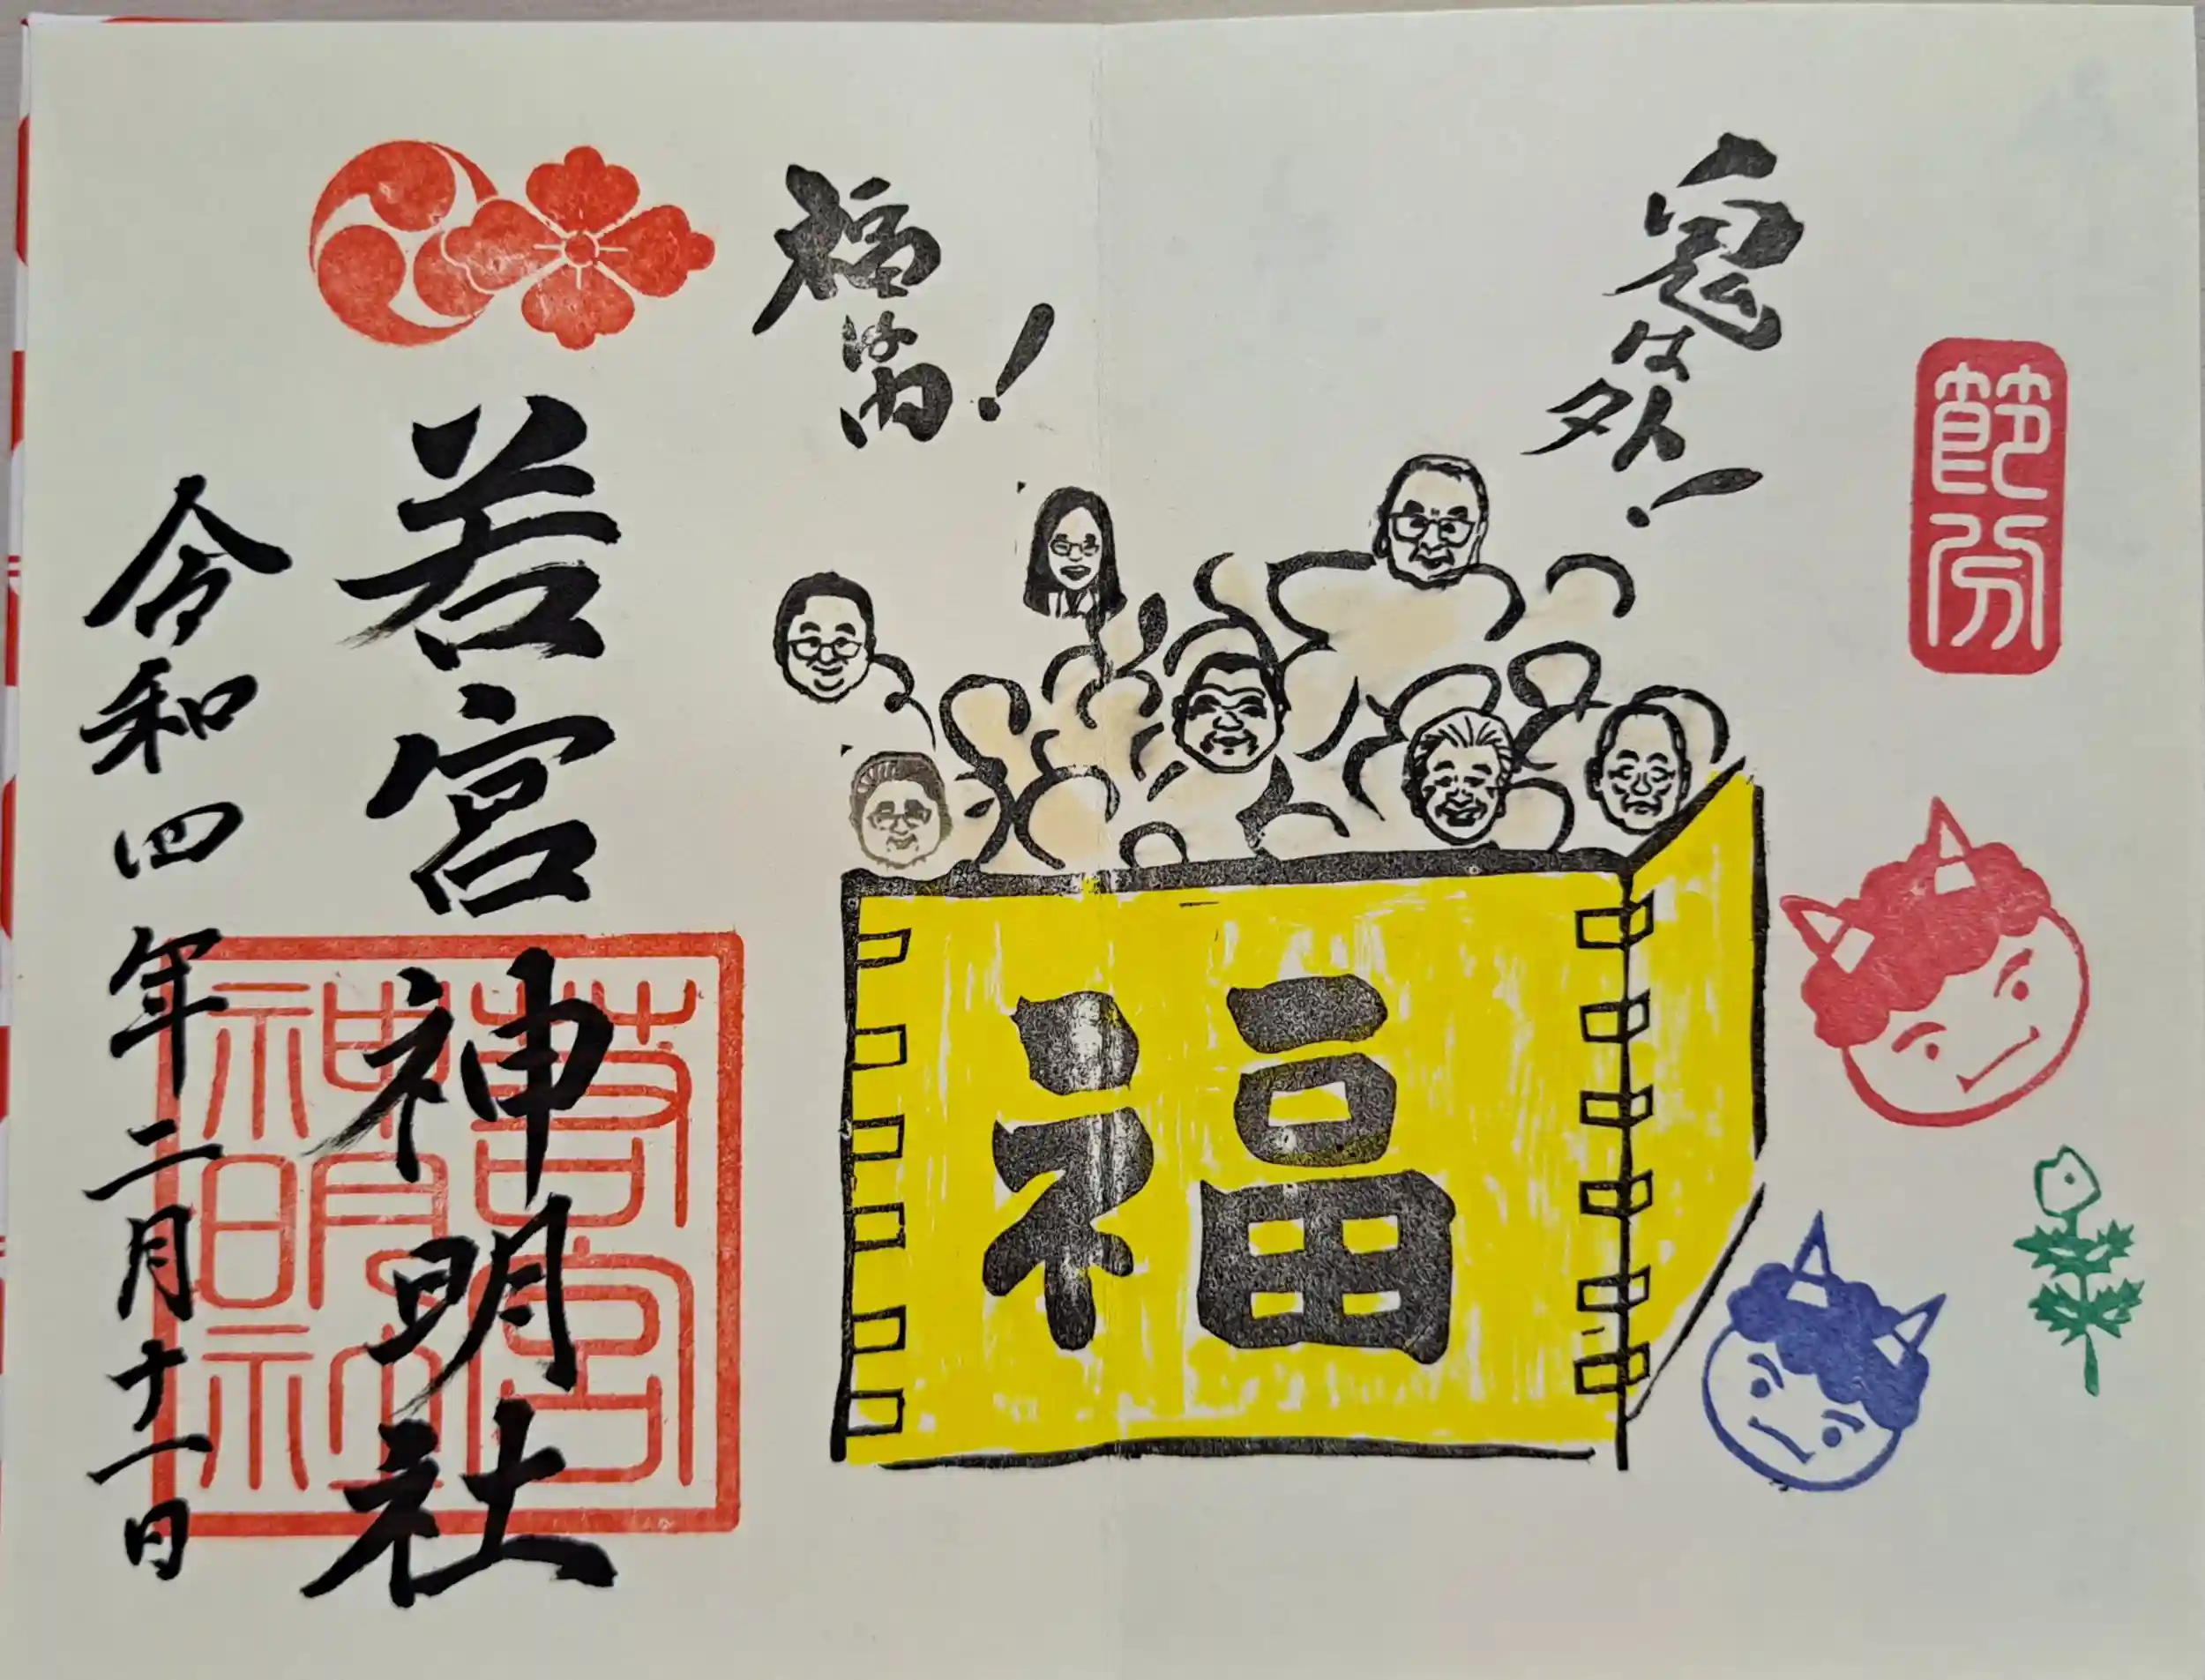 節分
鬼は外!
福は内!
福
若宮神明社
若宮神明社
令和四年二月十一日